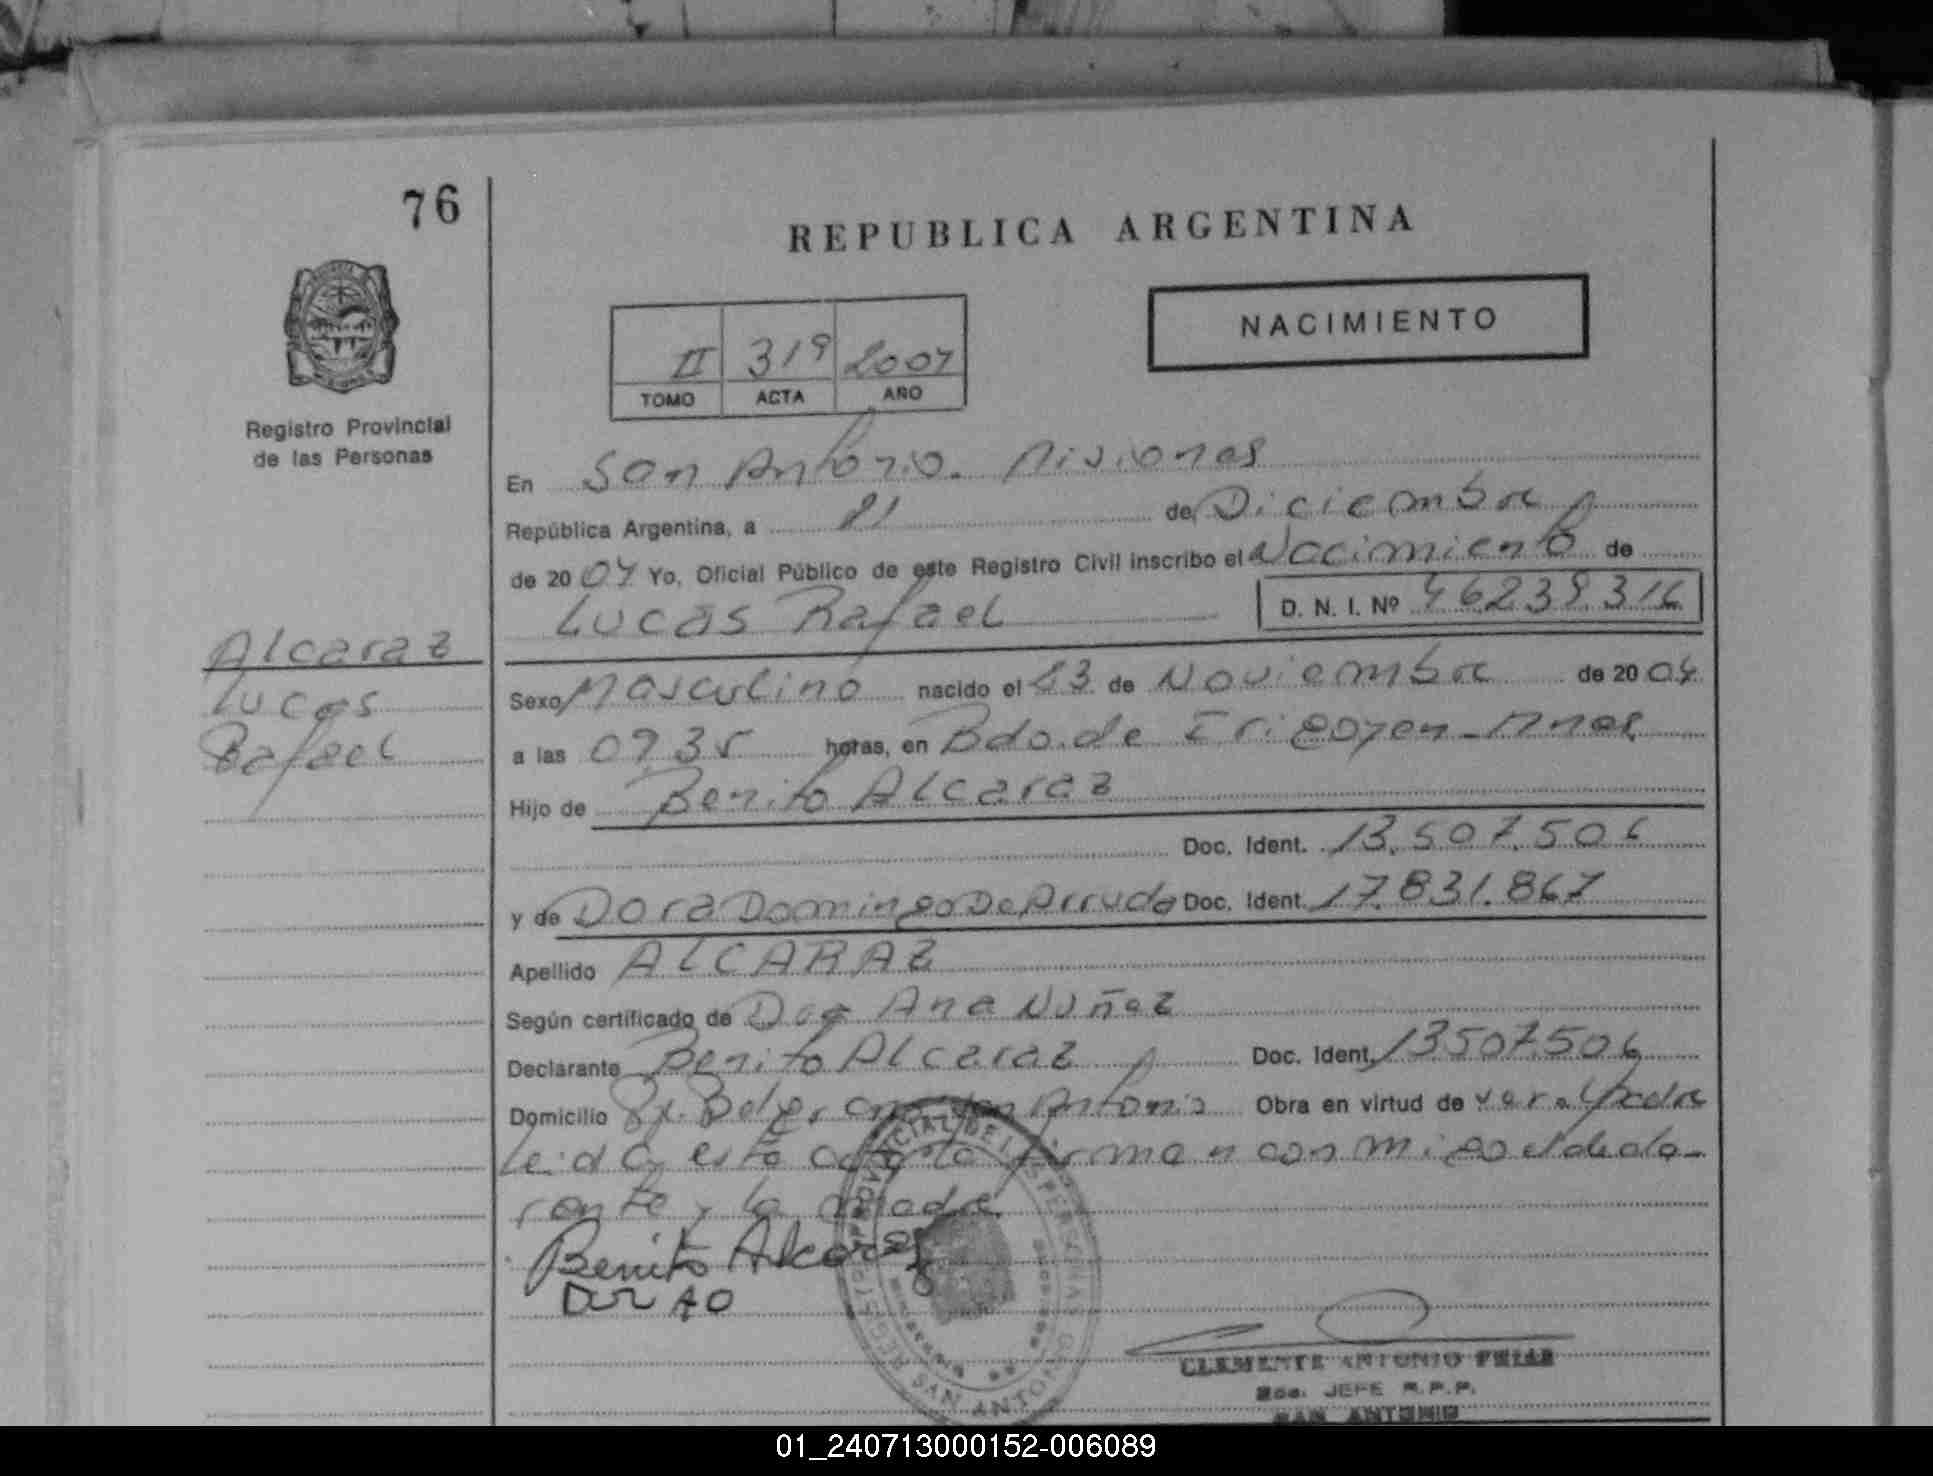 76
REPUBLICA ARGENTINA
NACIMIENTO
II 319 2004
TOMO ACTA AÑO
Registro Provincial
de las Personas
En San Antonio. Misiones
República Argentina, a 21 de Diciembre
de 2004 Yo, Oficial Público de este Registro Civil inscribo el Nacimiento de
Lucas Rafael D. N. I. Nº 46.239.316
Alcaraz
Lucas
Rafael
Sexo Masculino nacido el 23 de Noviembre de 2004
a las 09.35 horas, en Bdo. de Irigoyen - Mnes
Hijo de Benito Alcaraz
Doc. Ident. 13.507.506
y de Dora Domingo De Arruda Doc. Ident. 17.831.867
Apellido ALCARAZ
Según certificado de Dra Ana Nuñez
Declarante Benito Alcaraz Doc. Ident. 13507.506
Domicilio Belgrano San Antonio Obra en virtud de ser el padre
Leida esta acta la firman con migo el decla-
rante y la madre
Benito Alcaraz
REGISTRO PROVINCIAL DE LAS PERSONAS
SAN ANTONIO
MISIONES
CLEMENTE ANTONIO FRIAS
JEFE R.P.P.
SAN ANTONIO
01_240713000152-006089